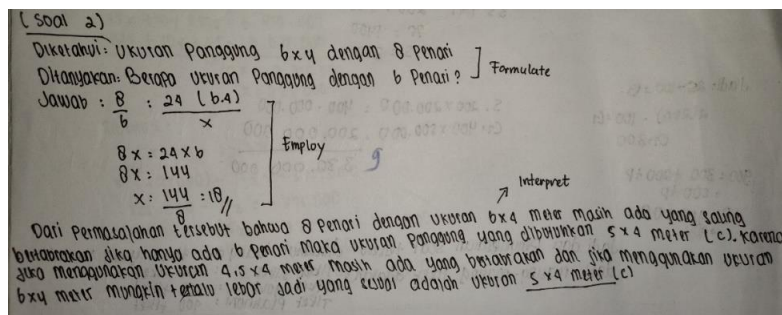 (Soal 2)
Diketahui: Ukuran Panggung 6x4 dengan 8 Penari
Ditanyakan: Berapa Ukuran Panggung dengan 6 Penari? ] Formulate
Jawab : 8/6 : 24 (6.4)/x
8x : 24 x 6
8x : 144
x : 144/8 : 18 //
Employ
9
Interpret
Dari Permasalahan tersebut bahwa 8 Penari dengan Ukuran 6x4 meter masih ada yang saling
bertabrakan jika hanya ada 6 Penari maka Ukuran Panggung yang dibutuhkan 5x4 meter (c). Karena
jika menggunakan Ukuran 4,5x4 meter masih ada yang bertabrakan dan jika menggunakan Ukuran
6x4 meter mungkin terlalu lebar jadi yang sesuai adalah Ukuran 5x4 meter (c)